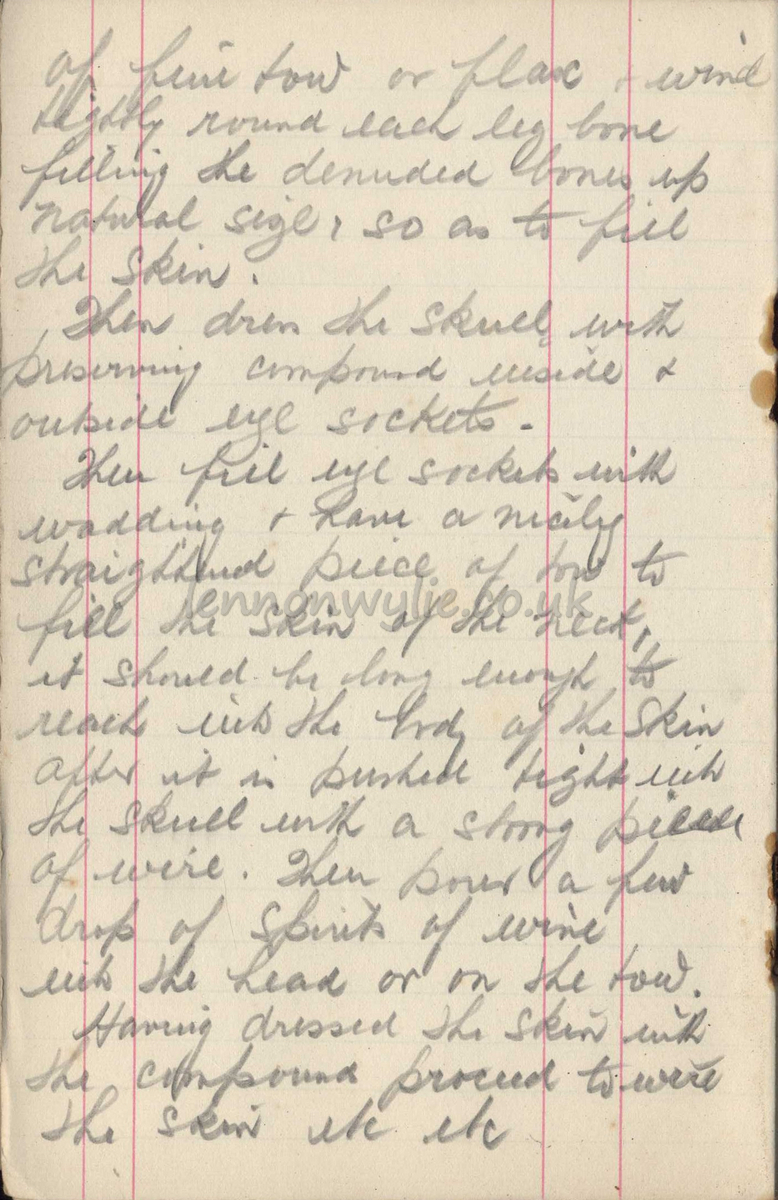 of fine tow or flax & wind
tightly round each leg bone
filling the denuded bones up
natural size, so as to fill
the skin.
Then dress the skull, with
preserving compound inside &
outside eye sockets.
Then fill eye sockets with
wadding & have a nicely
straightend piece of tow to
fill the skin of the neck,
lennonwylie.co.uk
it should be long enough to
reach into the body of the skin
after it is pushed tight into
the skull with a strong piece
of wire. Then pour a few
drop of spirits of wine
into the head or on the tow.
Having dressed the skin with
the compound proceed to wire
the skin etc etc